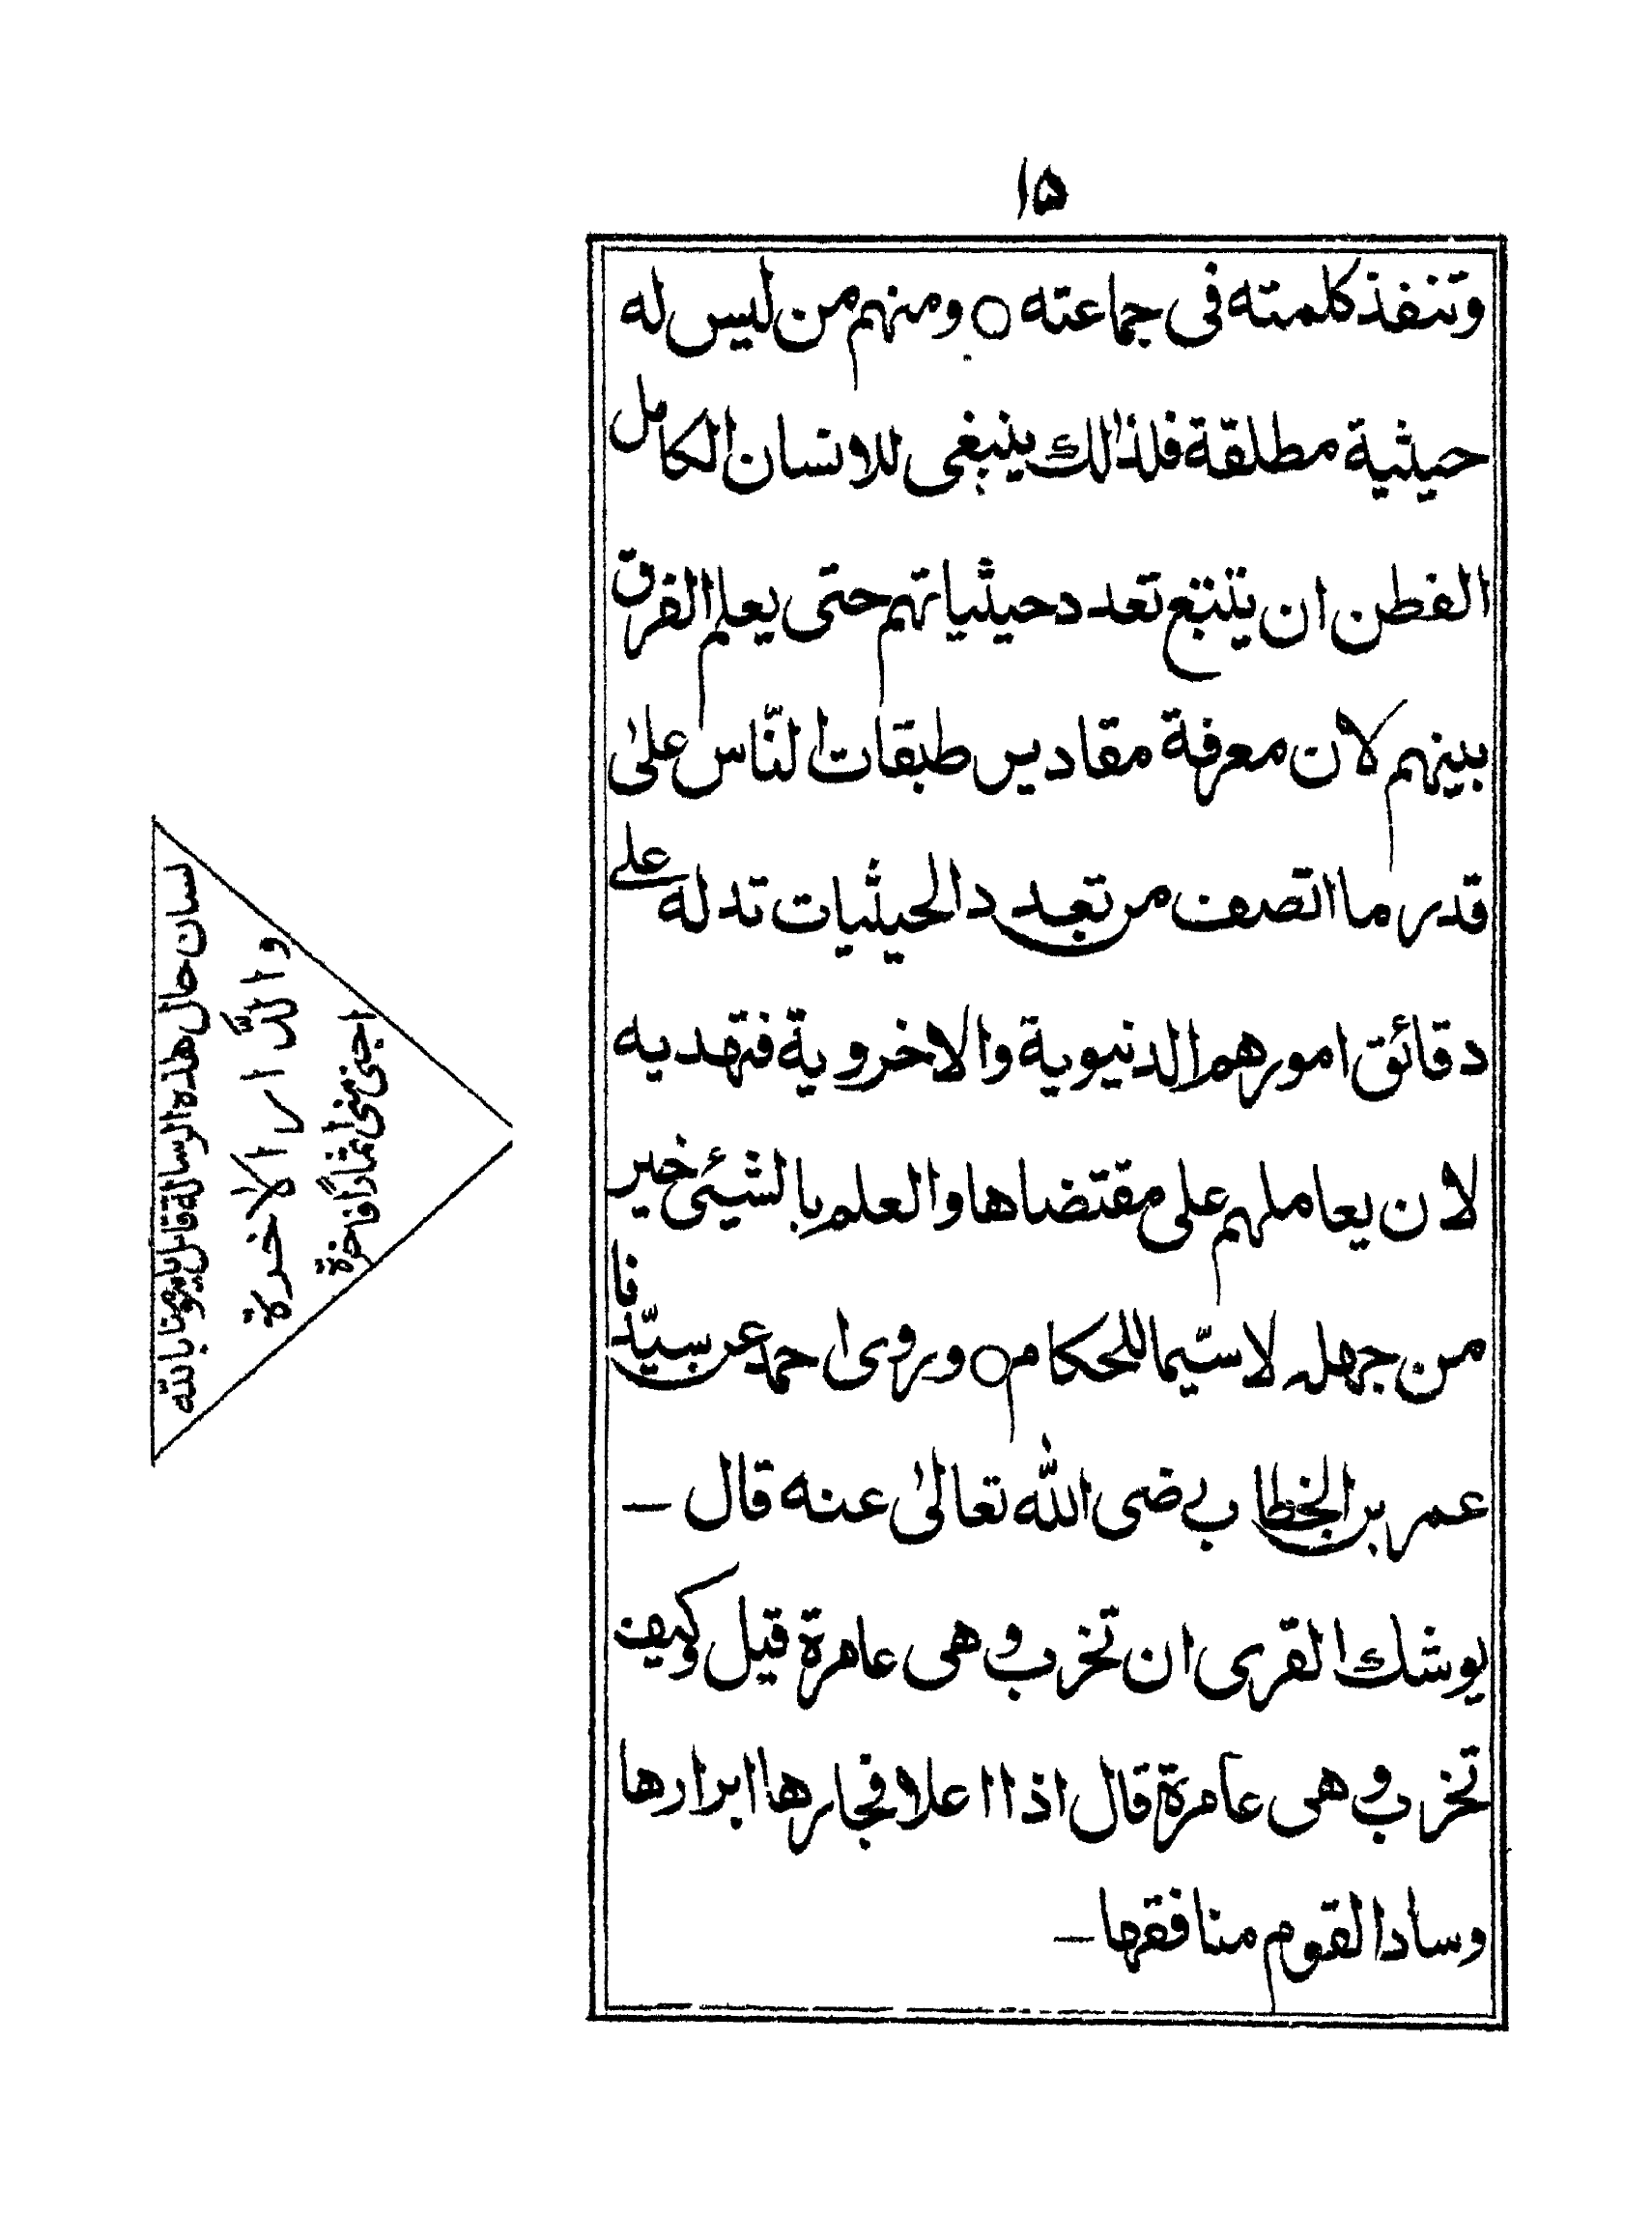 ١۵
وتنفذ كلمته فى جماعته ○ ومنهم من ليس له
حيثية مطلقة فلذٰلك ينبغى للانسان الكامل
الفطن ان يتتبع تعدد حيثياتهم حتى يعلم الفرق
بينهم لان معرفة مقادير طبقات النّاس علىٰ
قدر ما اتصف من تعدد الحيثيات تدله على
دقائق امورهم الدنيوية والاخروية فتهديه
لان يعاملهم على مقتضاها والعلم بالشيئ خير
من جهله لاسيّما للحكام ○ وروى احمد عن سيّدنا
عمر بن الخطاب رضى الله تعالىٰ عنه قال —
يوشك القرى ان تخرب وهى عامرة قيل وكيف
تخرب وهى عامرة قال اذا اعلا فجارها ابرارها
وساد القوم منافقها —
لسان حال هذه الرسالة قائل يا مؤمنا بالله
والدّار الاخرة
اجنى منى اثمارًا فاخرة